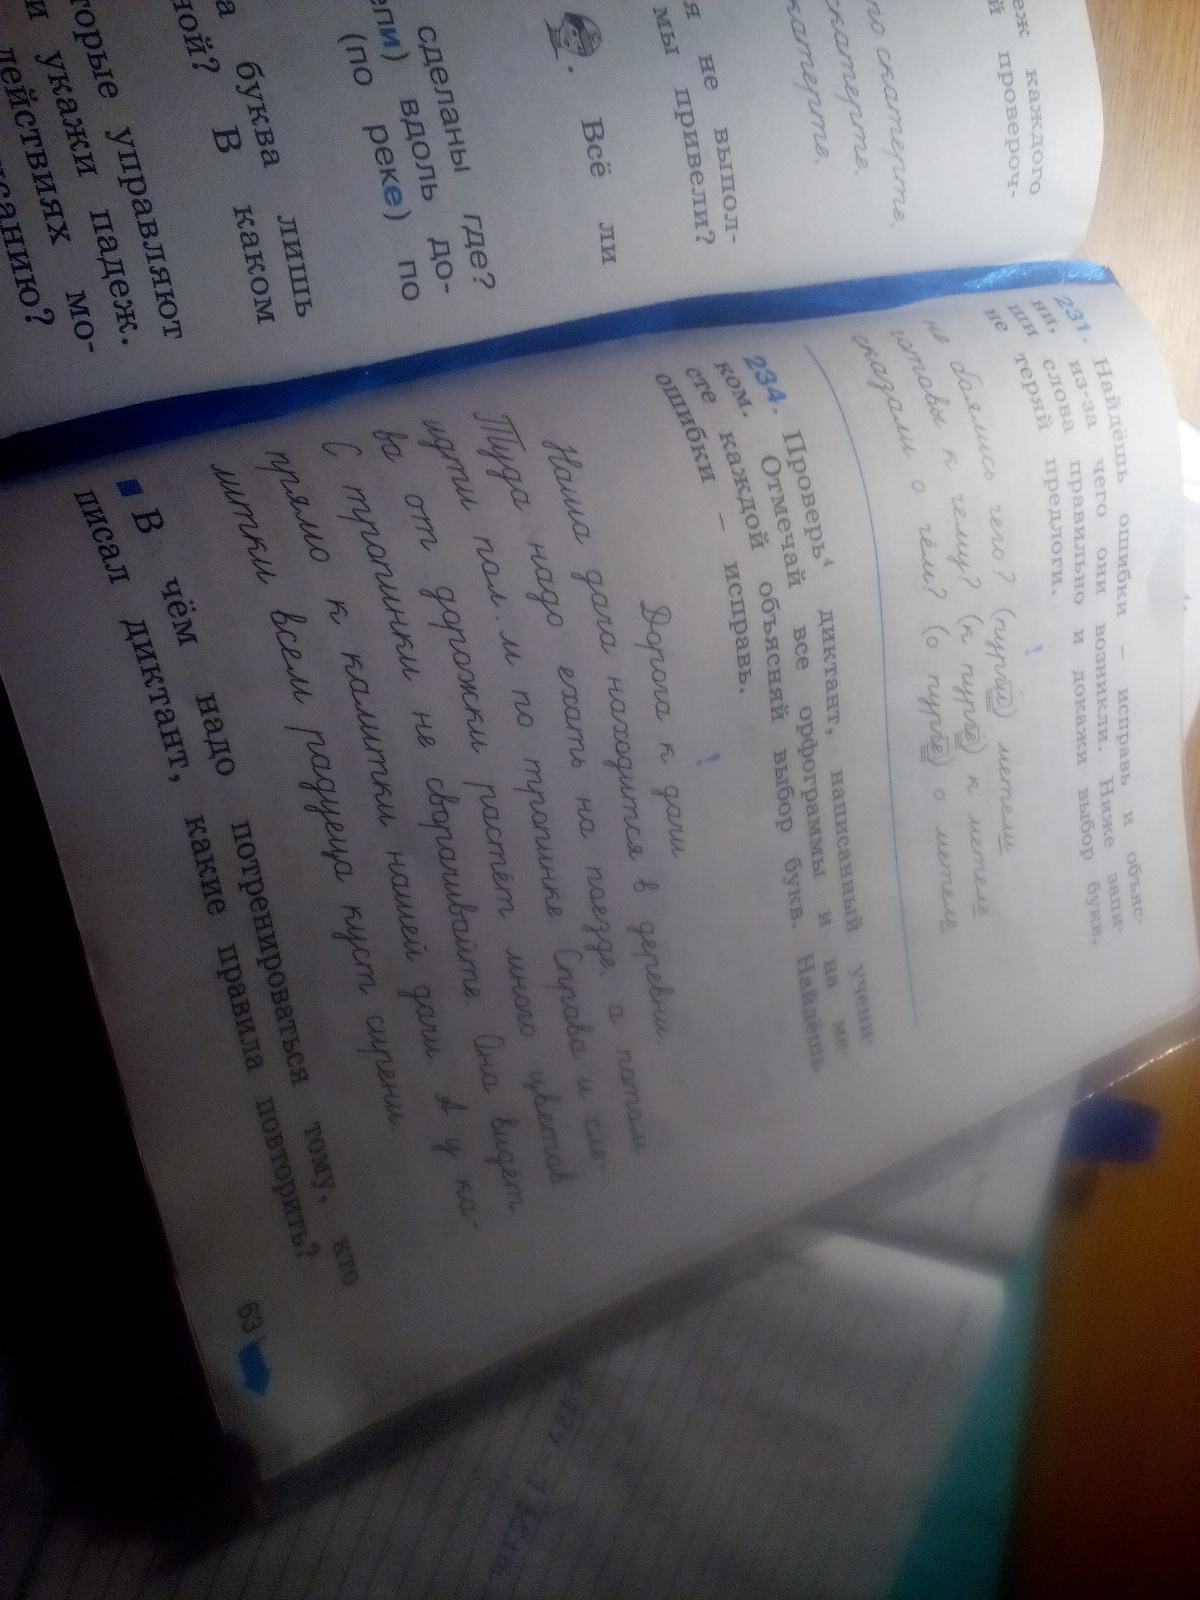 еж каждого
й провероч-
по скатерте.
скатерте.
катерте.
я не выпол-
мы привели?
. Всё ли
сделаны где?
епи) вдоль до-
(по реке) по
а буква лишь
ной? В каком
торые управляют
и укажи падеж.
действиях мо-
исанию?
231. Найдёшь ошибки – исправь и объяс-
ни, из-за чего они возникли. Ниже запи-
ши слова правильно и докажи выбор букв,
не теряй предлоги.
!
не боялись чего? (пурги) метели
готовы к чему? (к пурге) к метеле
сказали о чём? (о пурге) о метеле
234. Проверь⁴ диктант, написанный учени-
ком. Отмечай все орфограммы и на ме-
сте каждой объясняй выбор букв. Найдёшь
ошибки – исправь.
!
Дорога к дачи
Наша дача находится в деревни.
Туда надо ехать на поезде, а потом
идти пол. м по тропинке. Справа и сле-
ва от дорожки растёт много цветов.
С тропинки не сворачивайте. Она видёт
прямо к калитки нашей дачи. А у ка-
литки всем радуеца куст сирени.
В чём надо потренироваться тому, кто
писал диктант, какие правила повторить?
63